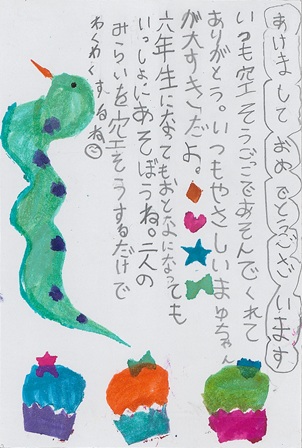 あけまして おめでとうございます
いつも空そうごっこであそんでくれて
ありがとう。いつもやさしいまゆちゃん
が大すきだよ。
六年生になってもおとなになっても
いっしょにあそぼうね。二人の
みらいを空そうするだけで
わくわくするね